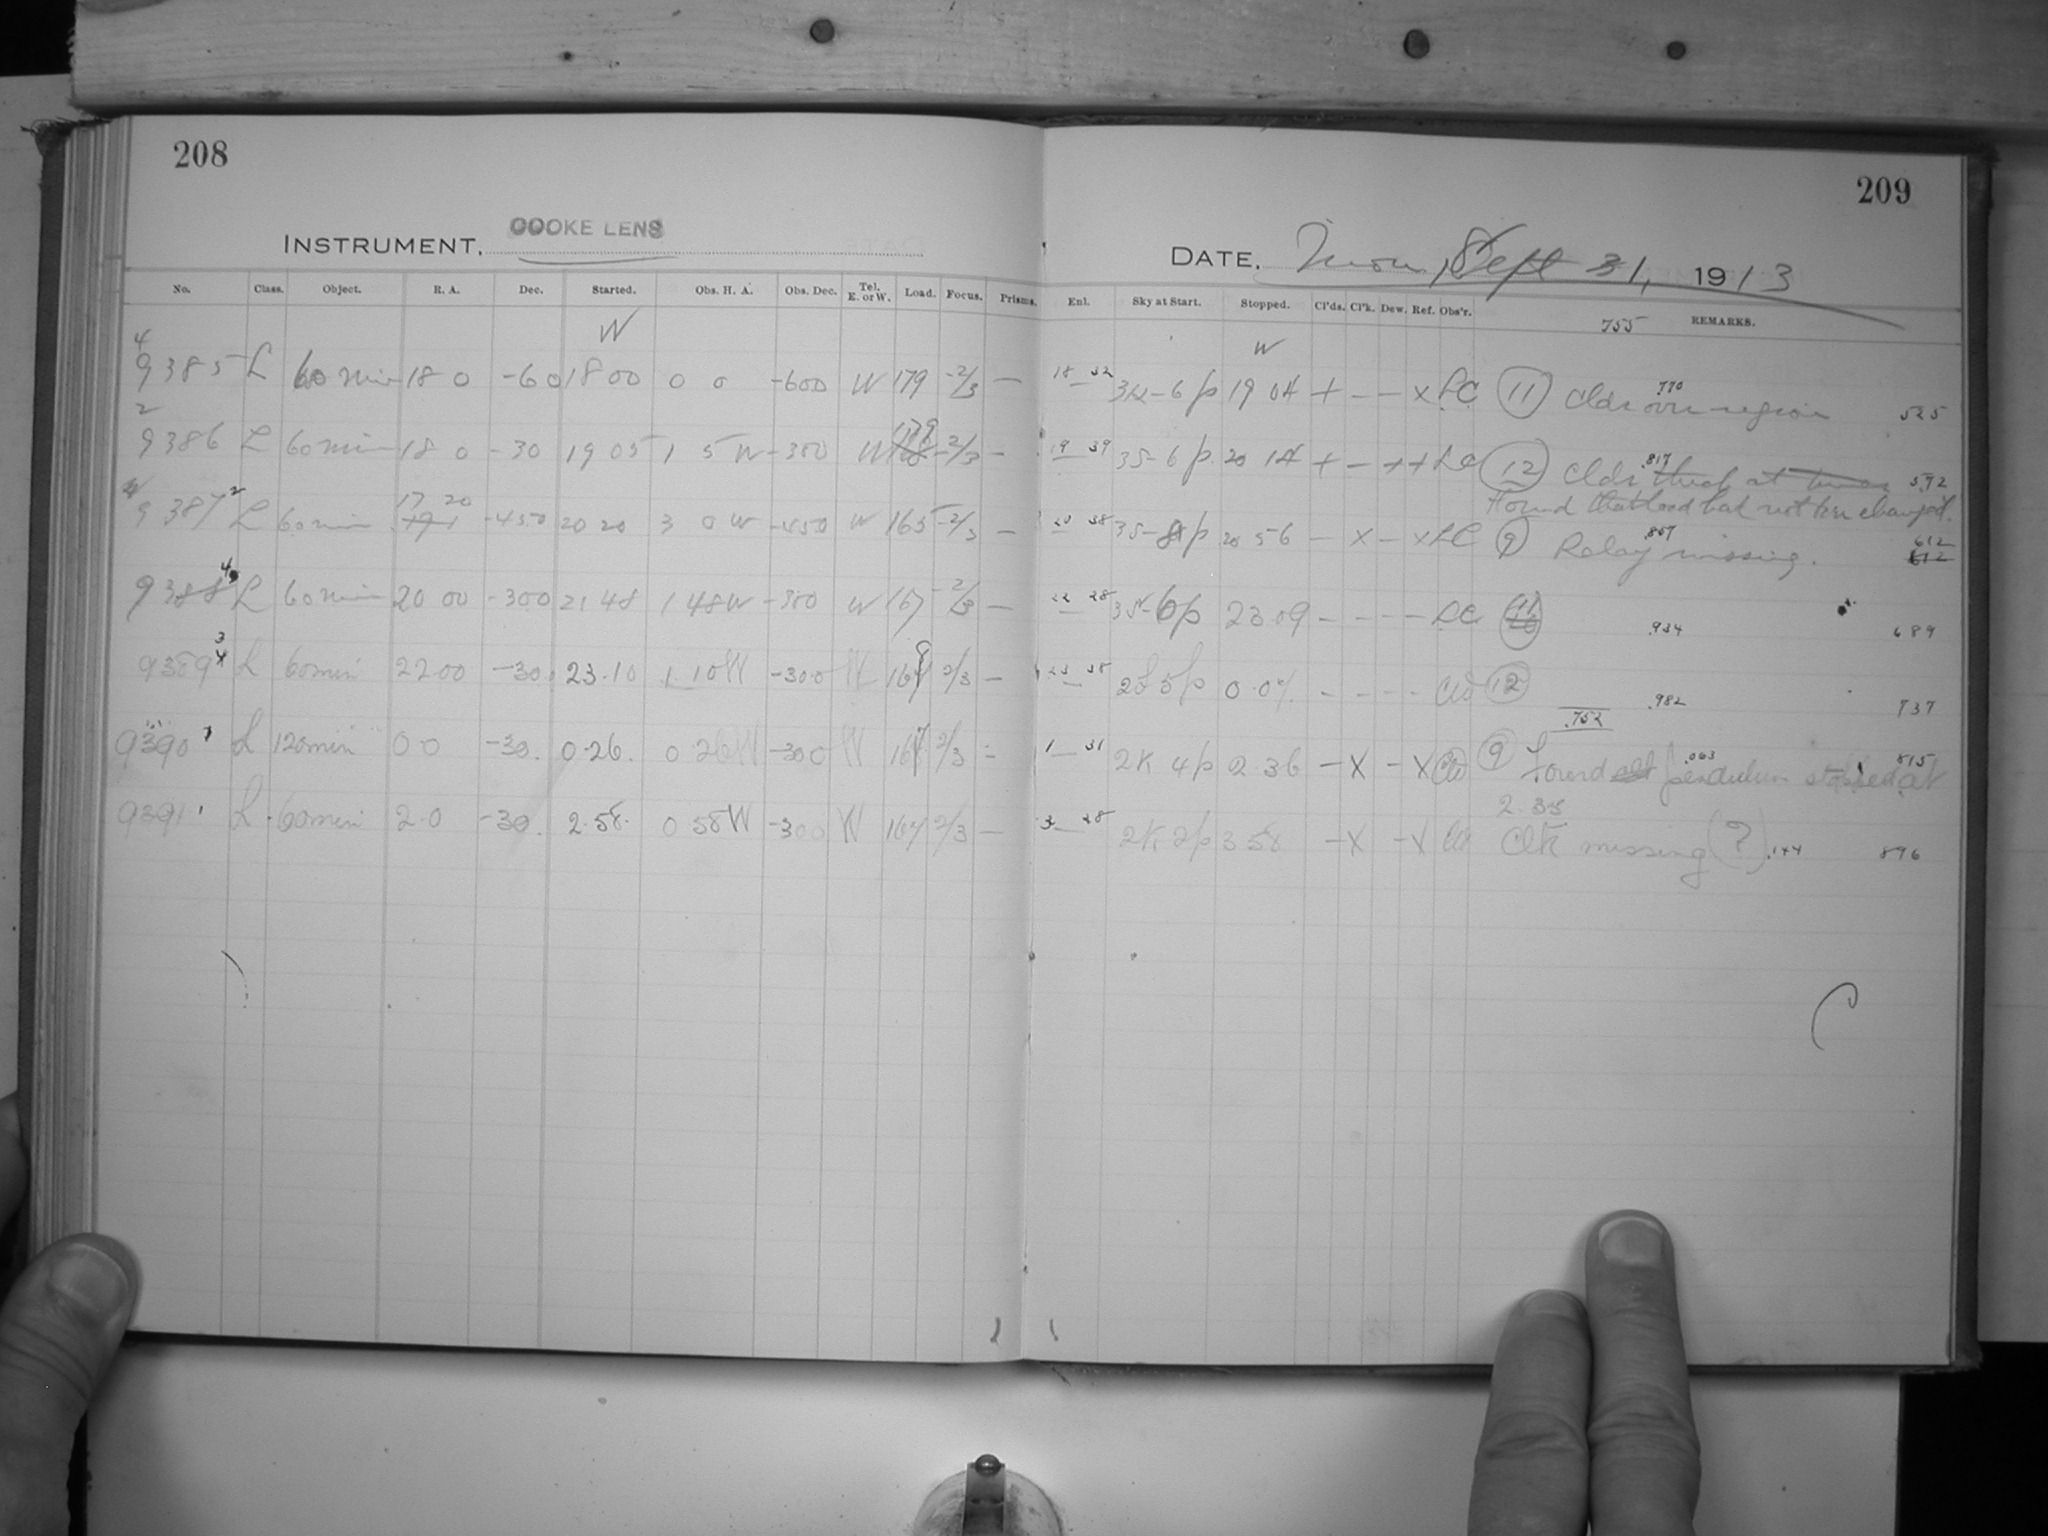 208
209
INSTRUMENT, COOKE LENS
DATE, Mon, Sept 1, 1913
No. Class. Object. R. A. Dec. Started. Obs. H. A. Obs. Dec. Tel. E. or W. Load. Focus. Prisms. Enl. Sky at Start. Stopped. Cl'ds. Cl'k. Dew. Ref. Obs'r. REMARKS.
W W 755
9385 4 L 60 min 18 0 -60 18 00 0 0 -600 W 179 -2/3 — 18 — 32 6p 19 04 + — — × LC (11) Clds over region .770 525
9386 2 L 60 min 18 0 -30 19 05 1 5 W -300 W 179 -2/3 — 19 — 39 35-6p 20 14 + — + + LC (12) Clds thick at times .817 592
Found that load had not been changed.
9387 2 L 60 min 17 20 -450 20 20 3 0 W -450 W 165 -2/3 — 20 — 38 20 56 — × — × LC (9) Relay missing. .857 612
9388 4 L 60 min 20 00 -300 21 48 1 48 W -300 W 167 -2/3 — 22 — 28 35-6p 23 09 - - - - LC (11) .934 689
9389 3 L 60 min 22.00 -30. 23.10 1 10 W -300 W 2/3 — 23 — 38 5p - - - - (12) .982 737
.752
9390 1 L 120 min 0 0 -30. 0.26. 0 26 W -300 W 2/3 - 1 — 31 2K 4p 2.36 — X — X (9) Found pendulum stopped at .063 815
2.35
9391 1 L 60 min 2.0 -30. 2.58. 0 58 W -300 W 2/3 — 3 — 28 2K 2p 3 58 — X — X Clk missing (?) .144 896